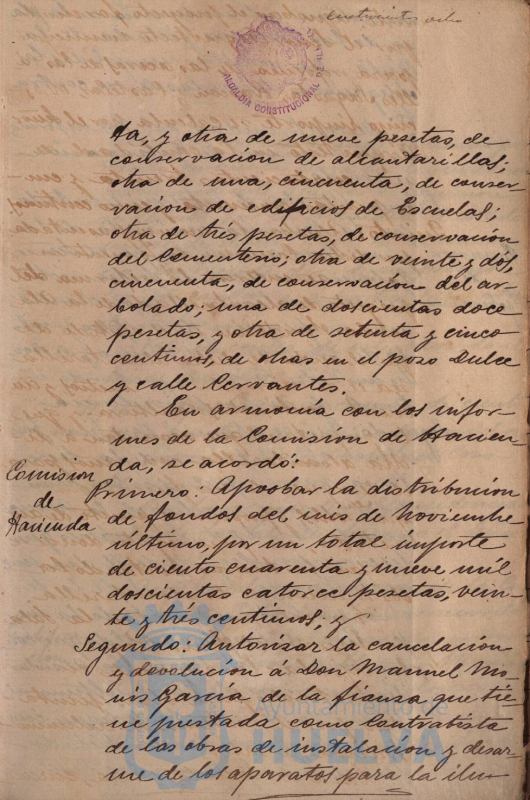 cuatrocientos ocho
ALCALDIA CONSTITUCIONAL DE HUELVA
ta, y otra de nueve pesetas, de
conservacion de alcantarillas;
otra de una, cincuenta, de conser-
vacion de edificios de Escuelas;
otra de tres pesetas, de conservacion
del Cementerio; otra de veinte y dos,
cincuenta, de conservacion del ar-
bolado; una de doscientas doce
pesetas, y otra de setenta y cinco
centimos, de obras en el pozo Dulce
y calle Cervantes.
En armonía con los infor-
mes de la Comision de Hacien-
da, se acordó:
Comision
de
Hacienda
Primero: Aprobar la distribucion
de fondos del mes de Noviembre
último, por un total importe
de ciento cuarenta y nueve mil
doscientas catorce pesetas, vein-
te y tres centimos; y
Segundo: Autorizar la cancelacion
y devolucion á Don Manuel Mo-
nis García de la fianza que tie-
ne prestada como Contratista
de las obras de instalacion y desar-
me de los aparatos para la ilu-
Ayuntamiento de
HUELVA